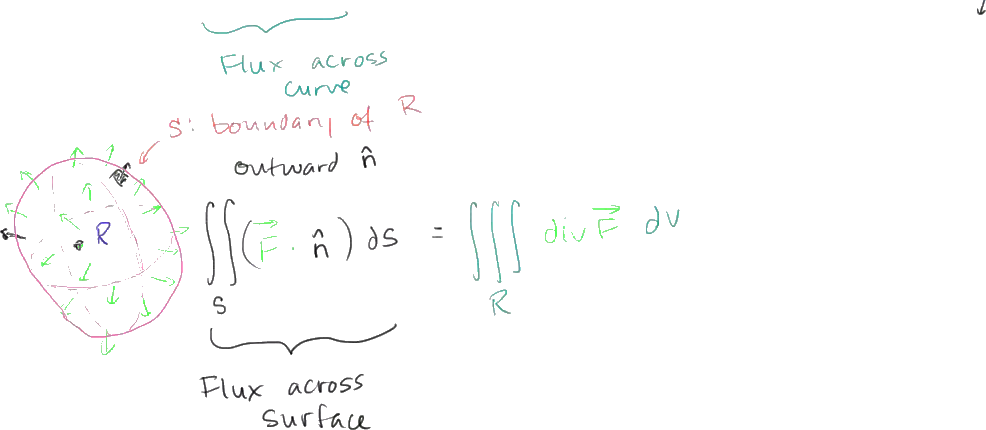 Flux across
curve
S: boundary of R
outward n̂
R
∬_S (F⃗ · n̂) dS = ∭_R div F⃗ dV
Flux across
surface